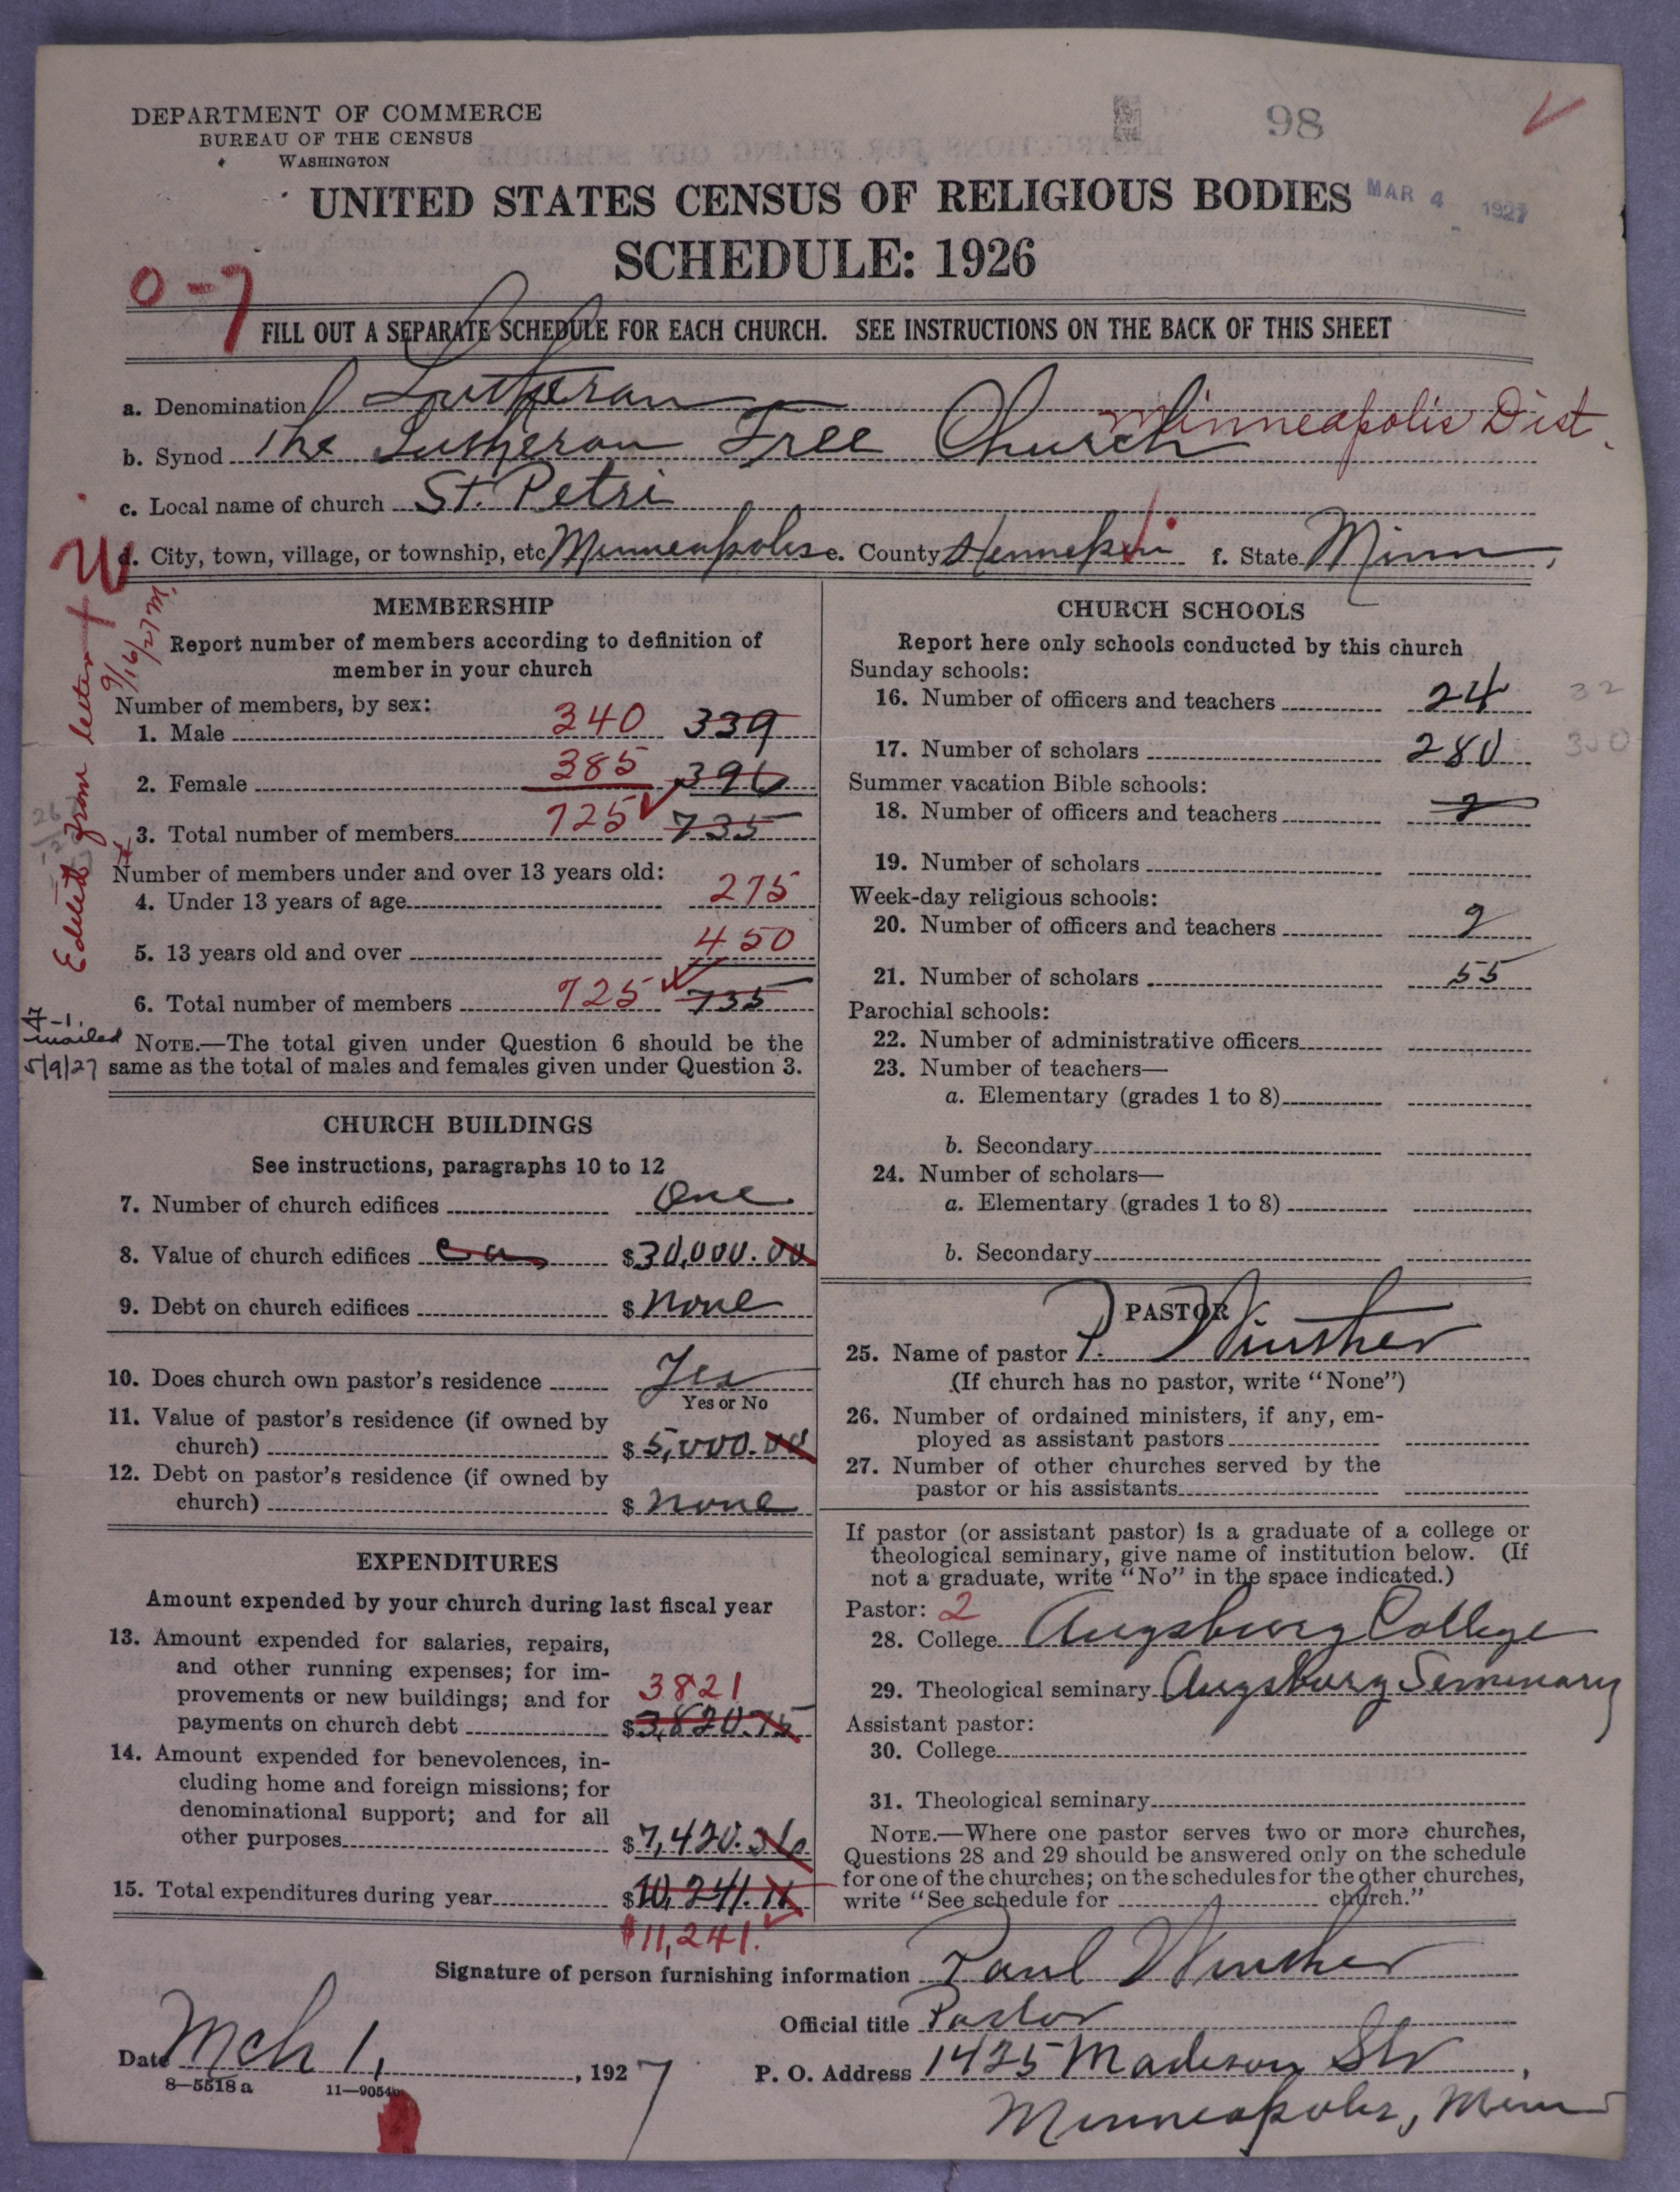 DEPARTMENT OF COMMERCE
BUREAU OF THE CENSUS
WASHINGTON
98
UNITED STATES CENSUS OF RELIGIOUS BODIES
MAR 4 1927
SCHEDULE: 1926
0-7
FILL OUT A SEPARATE SCHEDULE FOR EACH CHURCH. SEE INSTRUCTIONS ON THE BACK OF THIS SHEET
a. Denomination Lutheran
Minneapolis Dist.
b. Synod The Lutheran Free Church
c. Local name of church St. Petri
d. City, town, village, or township, etc Minneapolis e. County Hennepin f. State Minn,
Edited from letter
9/16/27
MEMBERSHIP
Report number of members according to definition of
member in your church
Number of members, by sex:
1. Male 340 339
2. Female 385 396
3. Total number of members 725 735
Number of members under and over 13 years old:
4. Under 13 years of age 275
5. 13 years old and over 450
6. Total number of members 725 735
4-1.
mailed
5/9/27
NOTE.—The total given under Question 6 should be the
same as the total of males and females given under Question 3.
CHURCH BUILDINGS
See instructions, paragraphs 10 to 12
7. Number of church edifices One
8. Value of church edifices ca $30,000.00
9. Debt on church edifices $ none
10. Does church own pastor's residence Yes
Yes or No
11. Value of pastor's residence (if owned by
church) $ 5,000.00
12. Debt on pastor's residence (if owned by
church) $ none
EXPENDITURES
Amount expended by your church during last fiscal year
13. Amount expended for salaries, repairs,
and other running expenses; for im-
provements or new buildings; and for 3821
payments on church debt $3,820.75
14. Amount expended for benevolences, in-
cluding home and foreign missions; for
denominational support; and for all
other purposes $7,420.36
15. Total expenditures during year $10,241.11
$11,241.
CHURCH SCHOOLS
Report here only schools conducted by this church
Sunday schools:
16. Number of officers and teachers 24 32
17. Number of scholars 280 300
Summer vacation Bible schools:
18. Number of officers and teachers 2
19. Number of scholars
Week-day religious schools:
20. Number of officers and teachers 2
21. Number of scholars 55
Parochial schools:
22. Number of administrative officers
23. Number of teachers—
a. Elementary (grades 1 to 8)
b. Secondary
24. Number of scholars—
a. Elementary (grades 1 to 8)
b. Secondary
PASTOR
25. Name of pastor P. Winther
(If church has no pastor, write "None")
26. Number of ordained ministers, if any, em-
ployed as assistant pastors
27. Number of other churches served by the
pastor or his assistants
If pastor (or assistant pastor) is a graduate of a college or
theological seminary, give name of institution below. (If
not a graduate, write "No" in the space indicated.)
Pastor: 2
28. College Augsburg College
29. Theological seminary Augsburg Seminary
Assistant pastor:
30. College
31. Theological seminary
NOTE.—Where one pastor serves two or more churches,
Questions 28 and 29 should be answered only on the schedule
for one of the churches; on the schedules for the other churches,
write "See schedule for church."
Signature of person furnishing information Paul Winther
Official title Pastor
Date Mch 1, 1927
P. O. Address 1425 Madison Str,
Minneapolis, Minn
8—5518 a 11—9054